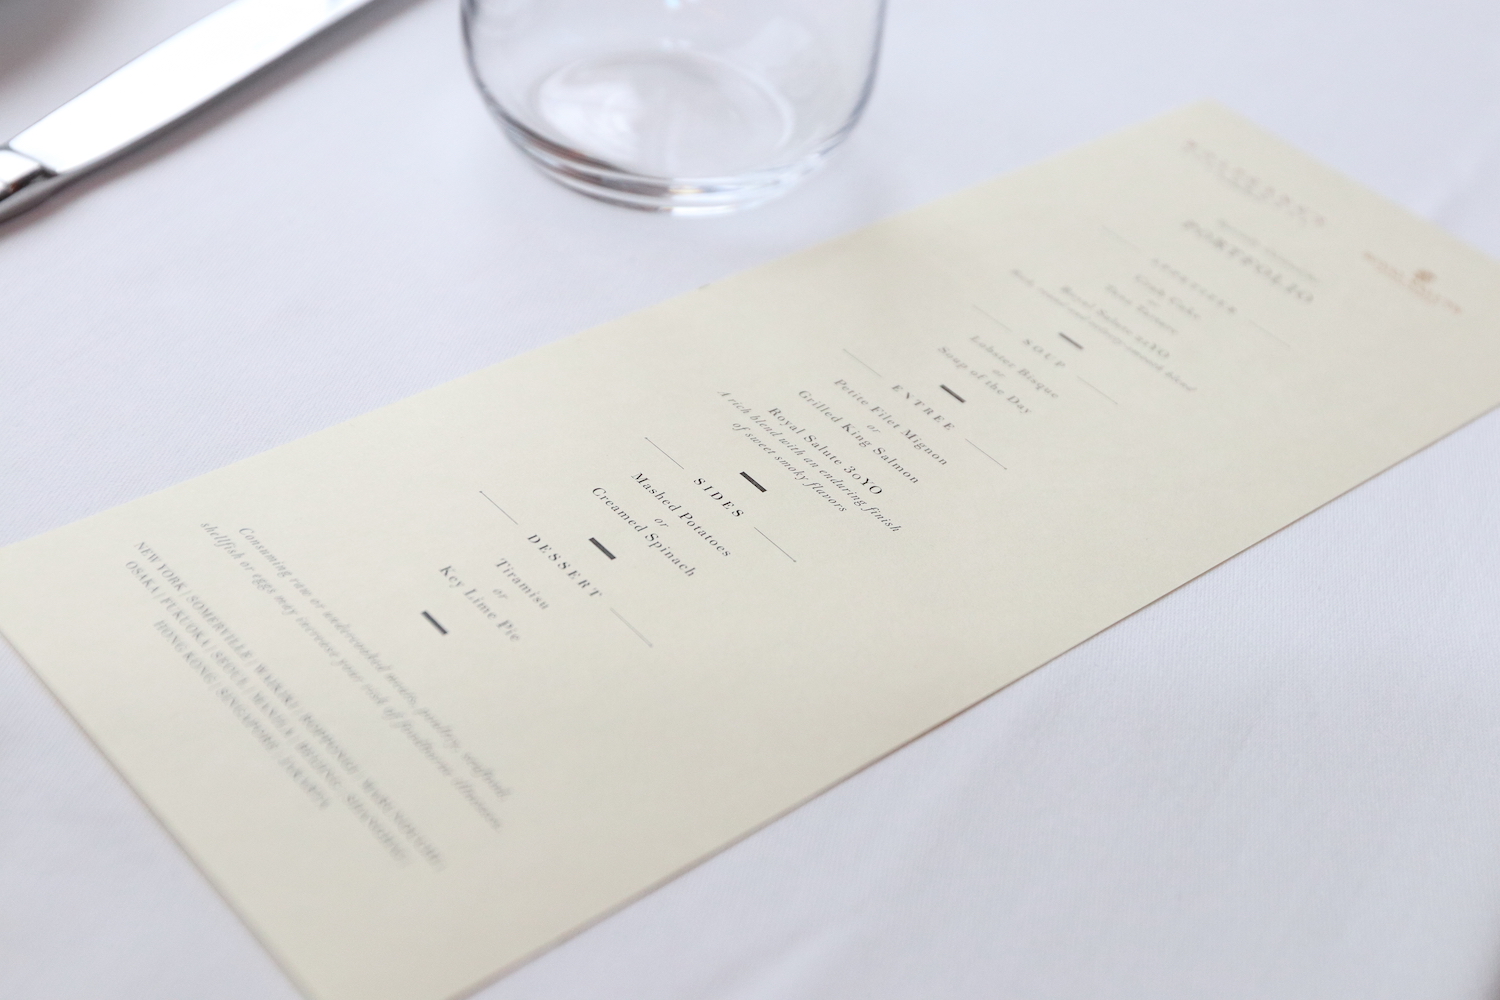 PORTFOLIO
APPETIZER
Crab Cake
or
Tuna Tartare
Royal Salute 21YO
SOUP
Lobster Bisque
or
Soup of the Day
ENTREE
Petite Filet Mignon
or
Grilled King Salmon
Royal Salute 30YO
A rich blend with an enduring finish
of sweet smoky flavors
SIDES
Mashed Potatoes
or
Creamed Spinach
DESSERT
Tiramisu
or
Key Lime Pie
Consuming raw or undercooked meats, poultry, seafood,
shellfish or eggs may increase your risk of foodborne illnesses.
NEW YORK | SOMERVILLE | WAIKIKI | ROPPONGI | MARUNOUCHI |
OSAKA | FUKUOKA | SEOUL | MANILA | BEIJING | SHANGHAI |
HONG KONG | SINGAPORE | JAKARTA